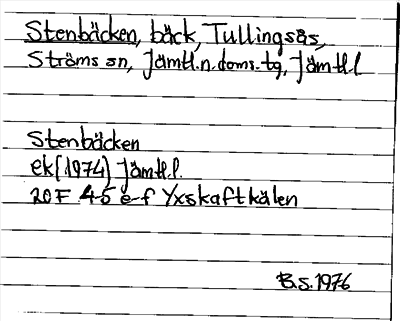 Stenbäcken, bäck, Tullingsås,
Ströms sn, Jämtl.n.doms.tg, Jämtl.l
Stenbäcken
ek(1974) Jämtl.l.
20F 45 e-f Yxskaftkälen
B.S.1976